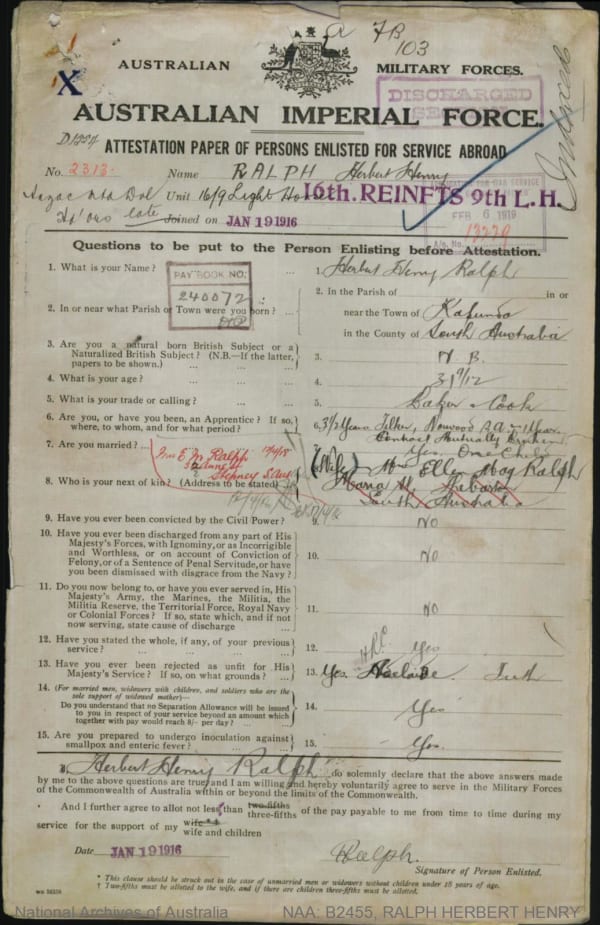 FB
103
AUSTRALIAN MILITARY FORCES.
X
DISCHARGED
AUSTRALIAN IMPERIAL FORCE.
ATTESTATION PAPER OF PERSONS ENLISTED FOR SERVICE ABROAD
No. 2313. Name RALPH Herbert Henry
Unit 16/9 Light Horse 16th. REINFTS 9th L. H.
late Joined on JAN 19 1916
FEB 6 1919
A/c. No. 13229
Questions to be put to the Person Enlisting before Attestation.
1. What is your Name? ... 1. Herbert Henry Ralph
PAYBOOK NO.
240072
2. In or near what Parish or Town were you born? ... 2. In the Parish of in or
near the Town of Kapunda
in the County of South Australia
3. Are you a natural born British Subject or a
Naturalized British Subject? (N.B.—If the latter,
papers to be shown.) ... 3. N B.
4. What is your age? ... 4. 31 9/12
5. What is your trade or calling? ... 5. Baker & Cook
6. Are you, or have you been, an Apprentice? If so,
where, to whom, and for what period? 6. 3 1/2 Years Norwood S.A.
Contract Mutually Broken
7. Are you married? ... 7. Yes. One Child
Mrs E. M. Ralph
Anne St
Stepney S. Aus
8. Who is your next of kin? (Address to be stated) (Wife) Mrs Ellen May Ralph
Maria St
South Australia
9. Have you ever been convicted by the Civil Power? 9. No
10. Have you ever been discharged from any part of His
Majesty's Forces, with Ignominy, or as Incorrigible
and Worthless, or on account of Conviction of
Felony, or of a Sentence of Penal Servitude, or have
you been dismissed with disgrace from the Navy? 10. No
11. Do you now belong to, or have you ever served in, His
Majesty's Army, the Marines, the Militia, the
Militia Reserve, the Territorial Force, Royal Navy
or Colonial Forces? If so, state which, and if not
now serving, state cause of discharge ... 11. No
12. Have you stated the whole, if any, of your previous
service? ... 12. Yes
13. Have you ever been rejected as unfit for His
Majesty's Service? If so, on what grounds? ... 13. Yes. Adelaide
14. (For married men, widowers with children, and soldiers who are the
sole support of widowed mother)—
Do you understand that no Separation Allowance will be issued
to you in respect of your service beyond an amount which
together with pay would reach 8/- per day? ... 14. Yes
15. Are you prepared to undergo inoculation against
smallpox and enteric fever? ... 15. Yes.
I, Herbert Henry Ralph do solemnly declare that the above answers made
by me to the above questions are true, and I am willing and hereby voluntarily agree to serve in the Military Forces
of the Commonwealth of Australia within or beyond the limits of the Commonwealth.
* And I further agree to allot not less than two-fifths
three-fifths of the pay payable to me from time to time during my
service for the support of my wife
wife and children
Date JAN 19 1916 HRalph.
Signature of Person Enlisted.
* This clause should be struck out in the case of unmarried men or widowers without children under 18 years of age.
† Two-fifths must be allotted to the wife, and if there are children three-fifths must be allotted.
National Archives of Australia NAA: B2455, RALPH HERBERT HENRY